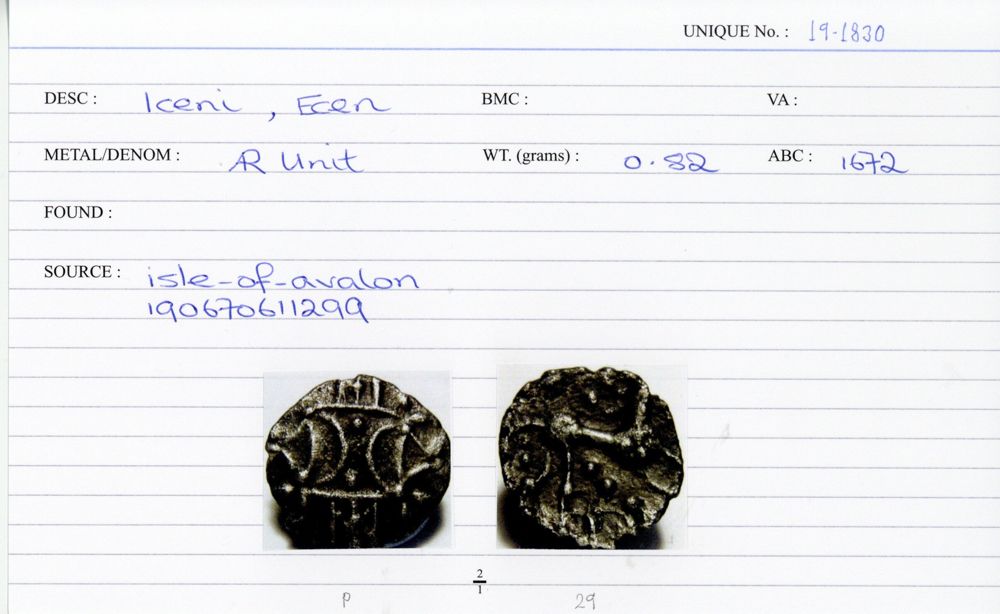 UNIQUE No. : 19-1830
DESC : Iceni, Ecen BMC : VA :
METAL/DENOM : AR Unit WT. (grams) : 0.82 ABC : 1672
FOUND :
SOURCE : isle-of-avalon
190670611299
2
1
P 29